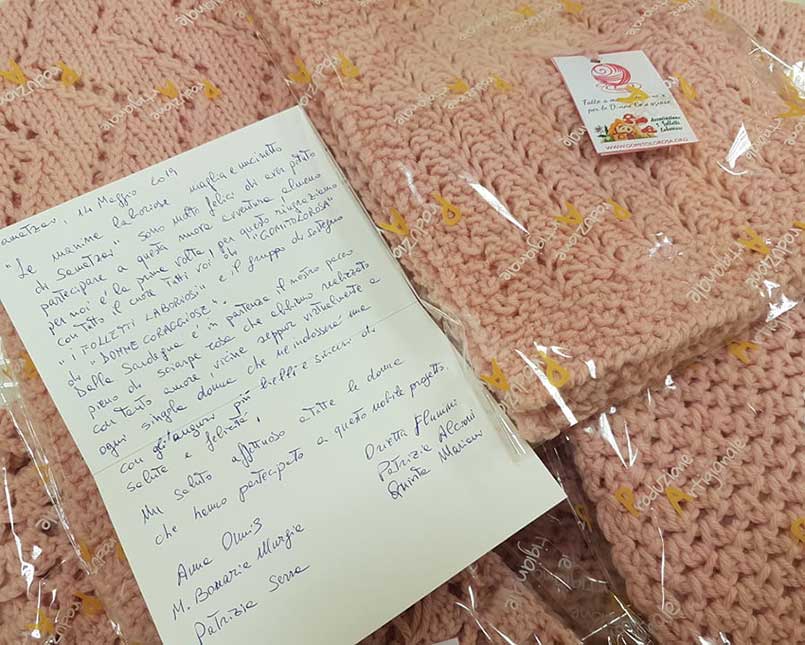 Samatzai, 14 Maggio 2019
"Le manine laboriose maglia e uncinetto
di Samatzai" sono molto felici di aver potuto
partecipare a questa nuova avventura, almeno
per noi è la prima volta, per questo ringraziamo
con tutto il cuore tutti voi di "GOMITOLOROSA"
"I FOLLETTI LABORIOSI" e il gruppo di sostegno
di "DONNE CORAGGIOSE".
Dalla Sardegna è in partenza il nostro pacco
pieno di sciarpe rosa che abbiamo realizzato
con tanto amore, vicine seppur virtualmente a
ogni singola donna che ne indosserà una
con gli auguri più belli e sinceri di
salute e felicità.
Un saluto affettuoso a tutte le donne
che hanno partecipato a questo nobile progetto.
Anna
M. Bonaria Murgia
Patrizia Serra
Patrizia
Fatto a
per le Donne
Associazione
I Folletti
Laboriosi
WWW.GOMITOLOROSA.ORG
Produzione
Artigianale
Produzione
Artigianale
Produzione
Artigianale